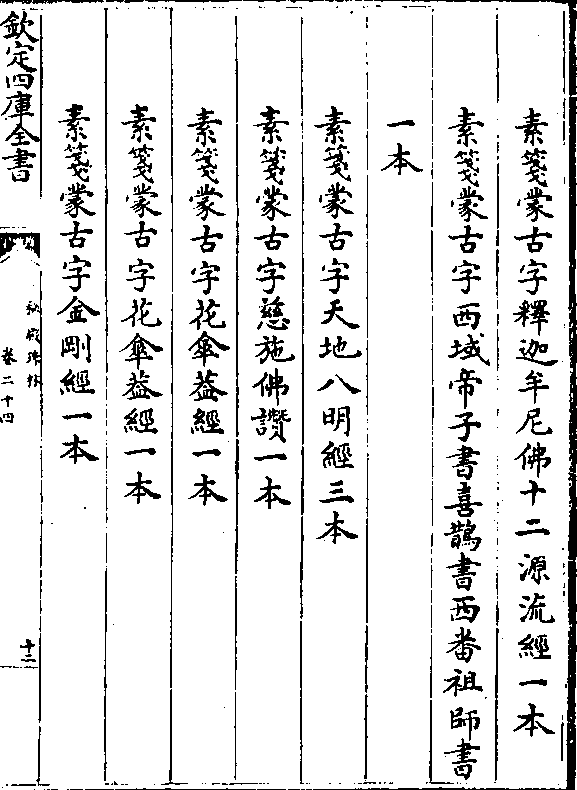 素箋蒙古字釋迦牟尼佛十二源流經一本
素箋蒙古字西域帝子書喜鵲書西番祖師書
一本
素箋蒙古字天地八明經三本
素箋蒙古字慈施佛讚一本
素箋蒙古字花傘葢經一本
素箋蒙古字花傘葢經一本
素箋蒙古字金剛經一本
欽定四庫全書
秘殿珠林
卷二十四
十二